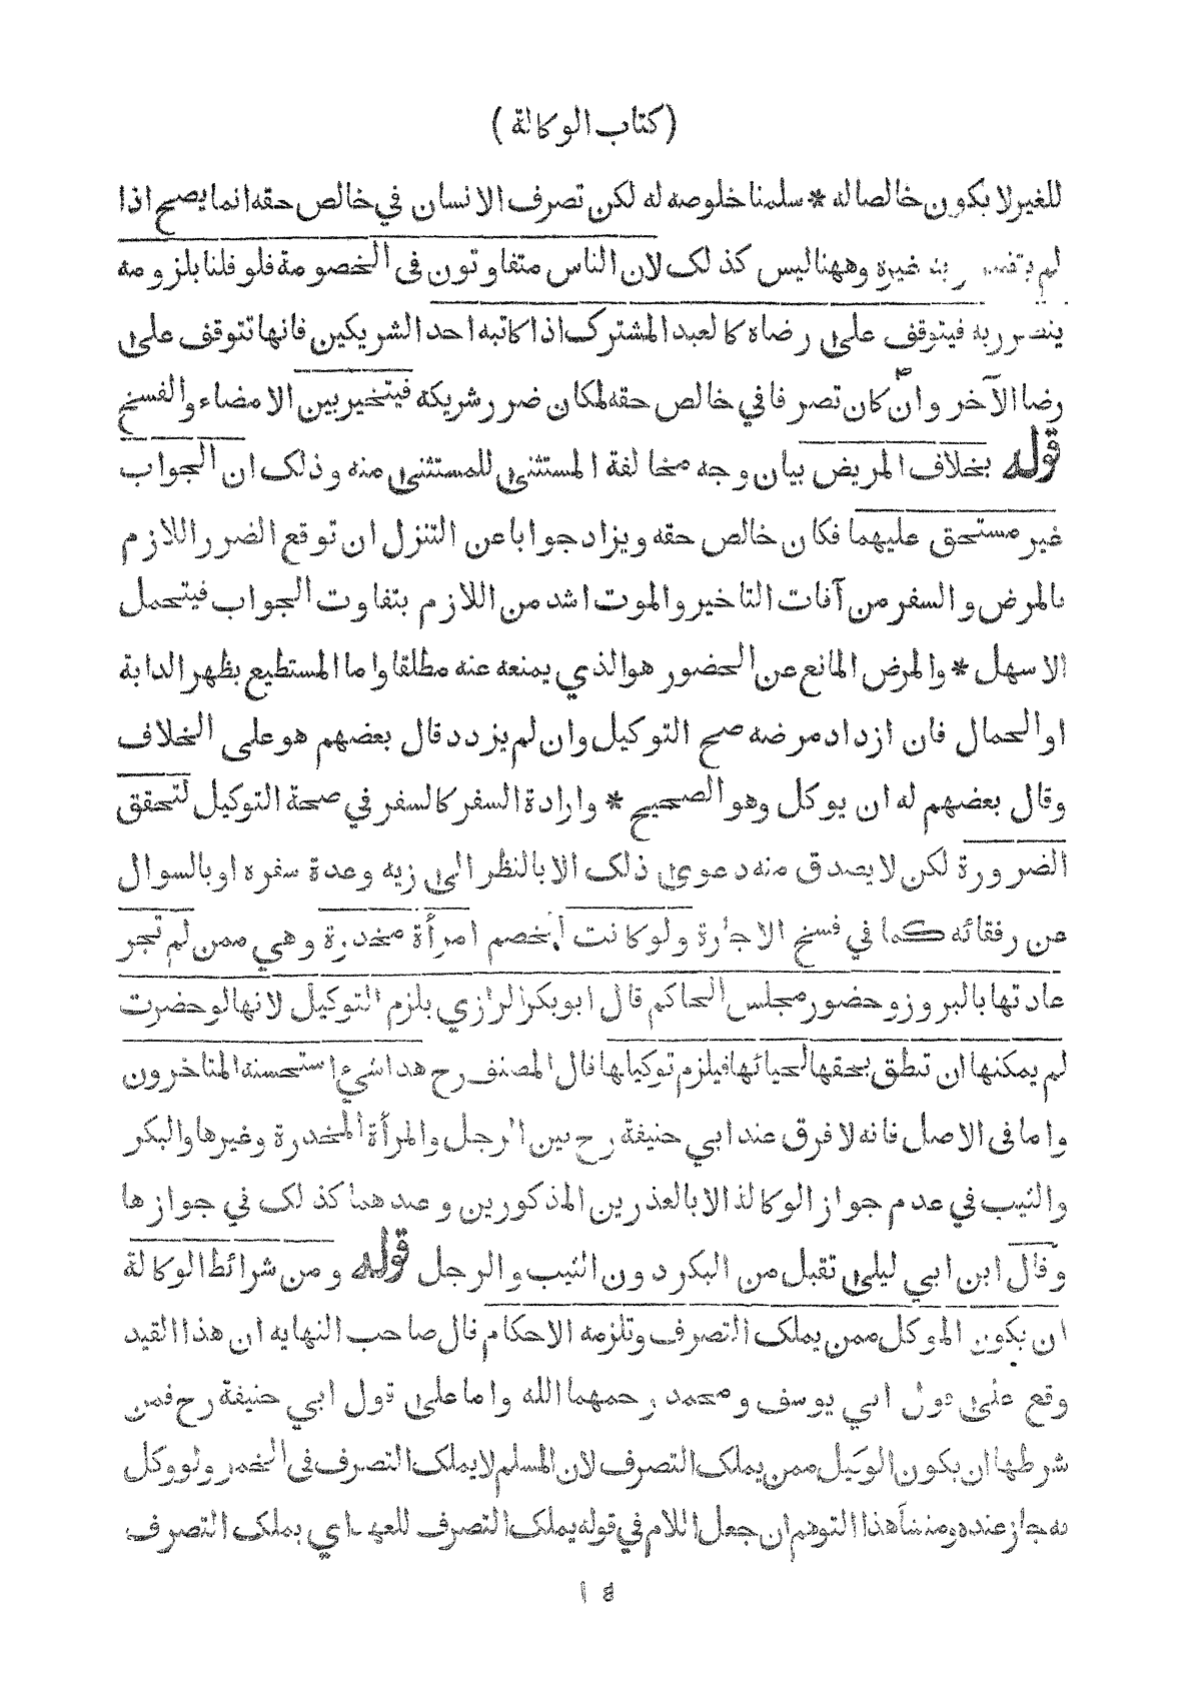 (كتاب الوكالة)
للغير لا يكون خالصا له * سلمنا خلوصه له لكن تصرف الانسان في خالص حقه انما يصح اذا
لم غيره وههنا ليس كذلك لان الناس متفاوتون فى الخصومة فلو قلنا بلزومه
يتضرر به فيتوقف على رضاه كالعبد المشترك اذا كاتبه احد الشريكين فانها تتوقف على
رضا الآخر وان كان تصرفا في خالص حقه لمكان ضرر شريكه فيتخير بين الامضاء والفسخ
قوله بخلاف المريض بيان وجه مخالفة المستثنى للمستثنى منه وذلك ان الجواب
غير مستحق عليهما فكان خالص حقه ويزاد جوابا عن التنزل ان توقع الضرر اللازم
بالمرض والسفر من آفات التاخير والموت اشد من اللازم بتفاوت الجواب فيتحمل
الاسهل * والمرض المانع عن الحضور هو الذي يمنعه عنه مطلقا واما المستطيع بظهر الدابة
او الحمال فان ازداد مرضه صح التوكيل وان لم يزدد قال بعضهم هو على الخلاف
وقال بعضهم له ان يوكل وهو الصحيح * وارادة السفر كالسفر في صحة التوكيل لتحقق
الضرورة لكن لا يصدق منه دعوى ذلك الا بالنظر الى زيه وعدة سفره او بالسوال
عن رفقائه كما في فسخ الاجارة ولو كانت الخصم امرأة مخدرة وهي ممن لم تجر
عادتها بالبروز وحضور مجلس الحاكم قال ابوبكر الرازي يلزم التوكيل لانها لو حضرت
لم يمكنها ان تنطق بحقها لحيائها فيلزم توكيلها قال المصنف رح هذا شيء استحسنه المتاخرون
واما فى الاصل فانه لا فرق عند ابي حنيفة رح بين الرجل والمرأة المخدرة وغيرها والبكر
والثيب في عدم جواز الوكالة الا بالعذرين المذكورين وعندهما كذلك في جوازها
وقال ابن ابي ليلى تقبل من البكر دون الثيب والرجل قوله ومن شرائط الوكالة
ان يكون الموكل ممن يملك التصرف وتلزمه الاحكام قال صاحب النهايه ان هذا القيد
وقع على قول ابي يوسف ومحمد رحمهما الله واما على قول ابي حنيفة رح فمن
شرطها ان يكون الوكيل ممن يملك التصرف لان المسلم لا يملك التصرف فى الخمر ولو وكل
به جاز عنده ومنشأ هذا التوهم ان جعل اللام في قوله يملك التصرف للعهد اي يملك التصرف